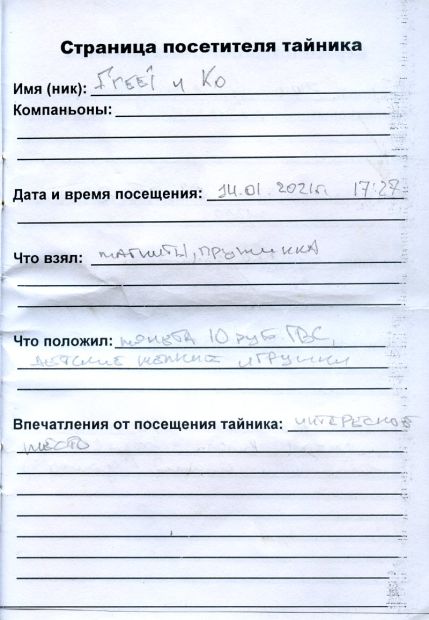 Страница посетителя тайника
Имя (ник): Freei и Ко
Компаньоны:
Дата и время посещения: 14.01.2021г. 17:27
Что взял: магниты, пружинка
Что положил: монета 10 руб. ГВС,
детские мелкие игрушки
Впечатления от посещения тайника: интересное
место